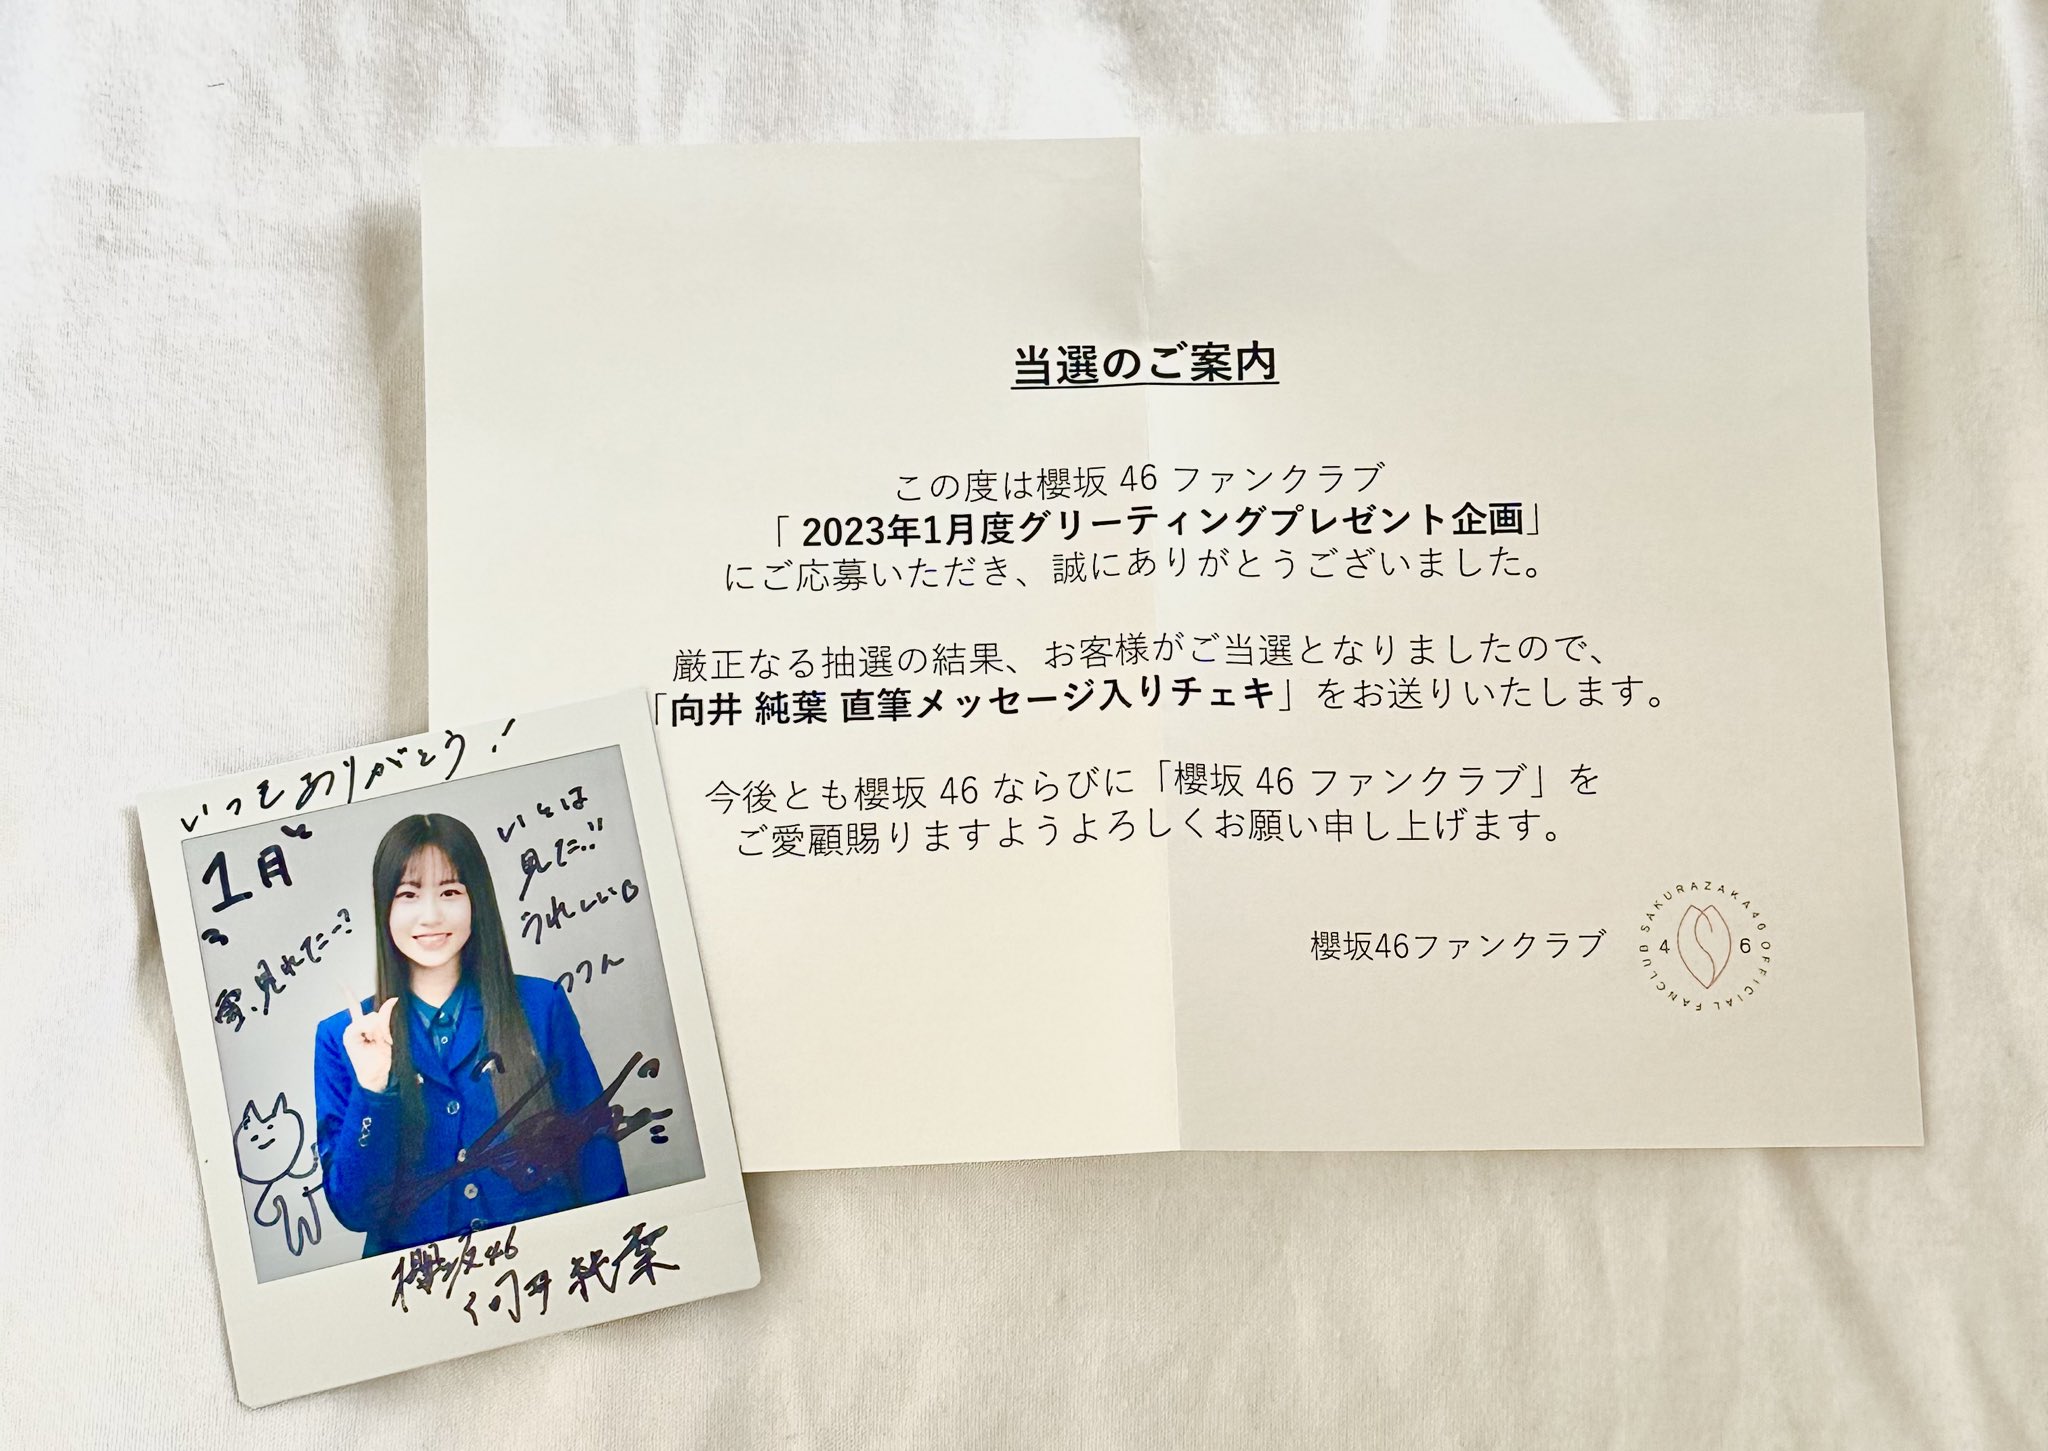 当選のご案内
この度は櫻坂 46 ファンクラブ
「 2023年1月度グリーティングプレゼント企画」
にご応募いただき、誠にありがとうございました。
厳正なる抽選の結果、お客様がご当選となりましたので、
「向井 純葉 直筆メッセージ入りチェキ」をお送りいたします。
今後とも櫻坂 46 ならびに「櫻坂 46 ファンクラブ」を
ご愛顧賜りますようよろしくお願い申し上げます。
櫻坂46ファンクラブ
SAKURAZAKA46 OFFICIAL FANCLUB
4 6
いつもありがとう!
1月
見れた〜?
いとは
見てた!!
うれしい
櫻坂46
向井 純葉